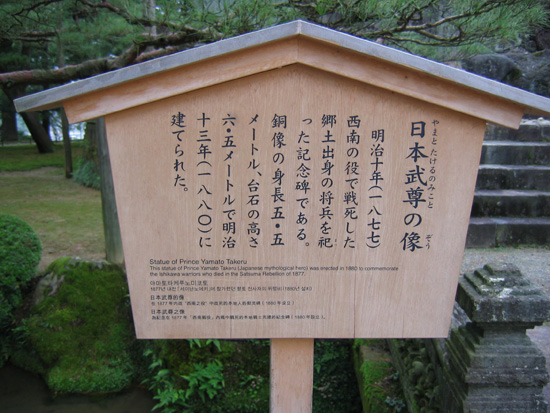 やまとたけるのみこと ぞう
日本武尊の像
明治十年(一八七七)
西南の役で戦死した
郷土出身の将兵を祀
った記念碑である。
銅像の身長五・五
メートル、台石の高さ
六・五メートルで明治
十三年(一八八〇)に
建てられた。
Statue of Prince Yamato Takeru
This statue of Prince Yamato Takeru (Japanese mythological hero) was erected in 1880 to commemorate
the Ishikawa warriors who died in the Satsuma Rebellion of 1877.
야마토타케루노미코토
日本武尊的像
日本武尊之像